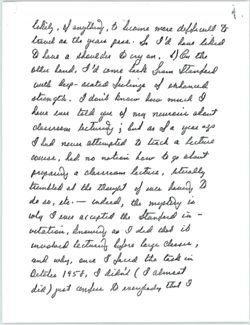 likely, if anything, to become more difficult to
travel as the years pass. So I'd have liked
to have a shoulder to cry on. 2) On the
other hand, I'd come back from Stanford
with deep-seated feelings of enhanced
strength. I don't know how much I
have ever told you of my neurosis about
classroom lecturing; but as of a year ago
I had never attempted to teach a lecture
course, had no notion how to go about
preparing a classroom lecture, literally
trembled at the thought of ever having to
do so, etc. — indeed, the mystery is
why I ever accepted the Stanford in-
vitation, knowing as I did that it
involved lecturing before large classes,
and why, once I faced the task in
October 1958, I didn't (I almost
did) just confess to everybody that I